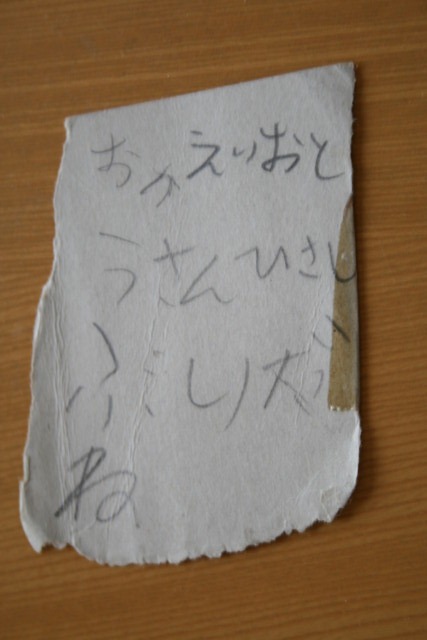 おかえりおと
うさんひさし
ぶりだ
ね